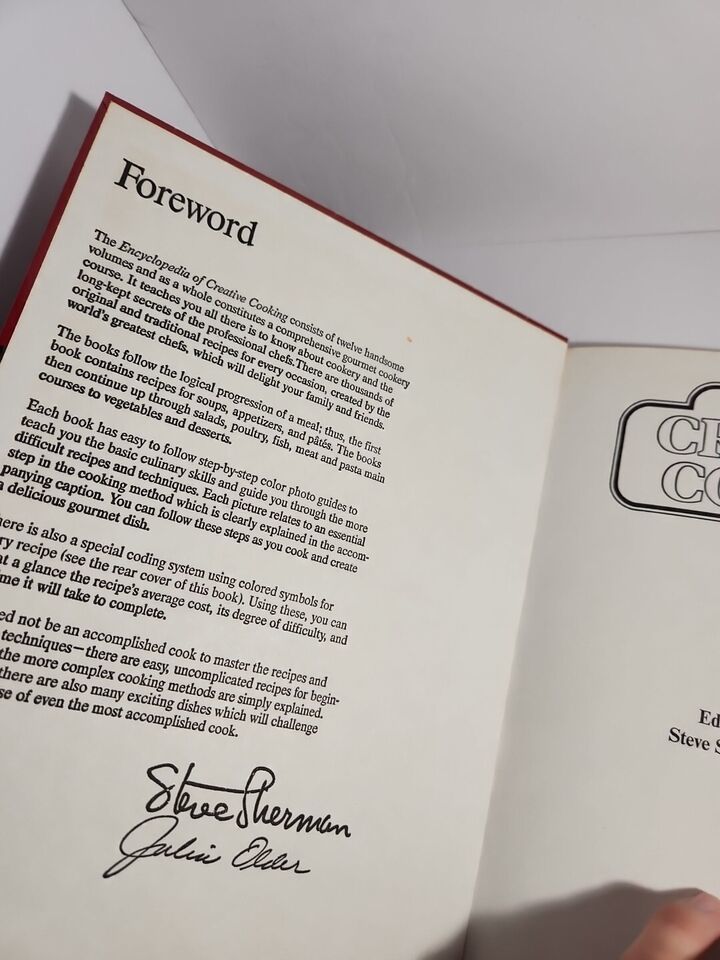 Foreword
The Encyclopedia of Creative Cooking consists of twelve handsome
volumes and as a whole constitutes a comprehensive gourmet cookery
course. It teaches you all there is to know about cookery and the
long-kept secrets of the professional chefs.There are thousands of
original and traditional recipes for every occasion, created by the
world's greatest chefs, which will delight your family and friends.
The books follow the logical progression of a meal; thus, the first
book contains recipes for soups, appetizers, and pâtés. The books
then continue up through salads, poultry, fish, meat and pasta main
courses to vegetables and desserts.
Each book has easy to follow step-by-step color photo guides to
teach you the basic culinary skills and guide you through the more
difficult recipes and techniques. Each picture relates to an essential
step in the cooking method which is clearly explained in the accom-
panying caption. You can follow these steps as you cook and create
a delicious gourmet dish.
here is also a special coding system using colored symbols for
ry recipe (see the rear cover of this book). Using these, you can
at a glance the recipe's average cost, its degree of difficulty, and
me it will take to complete.
ed not be an accomplished cook to master the recipes and
techniques—there are easy, uncomplicated recipes for begin-
the more complex cooking methods are simply explained.
there are also many exciting dishes which will challenge
se of even the most accomplished cook.
Steve Sherman
Julia Older
C
CO
Ed
Steve S